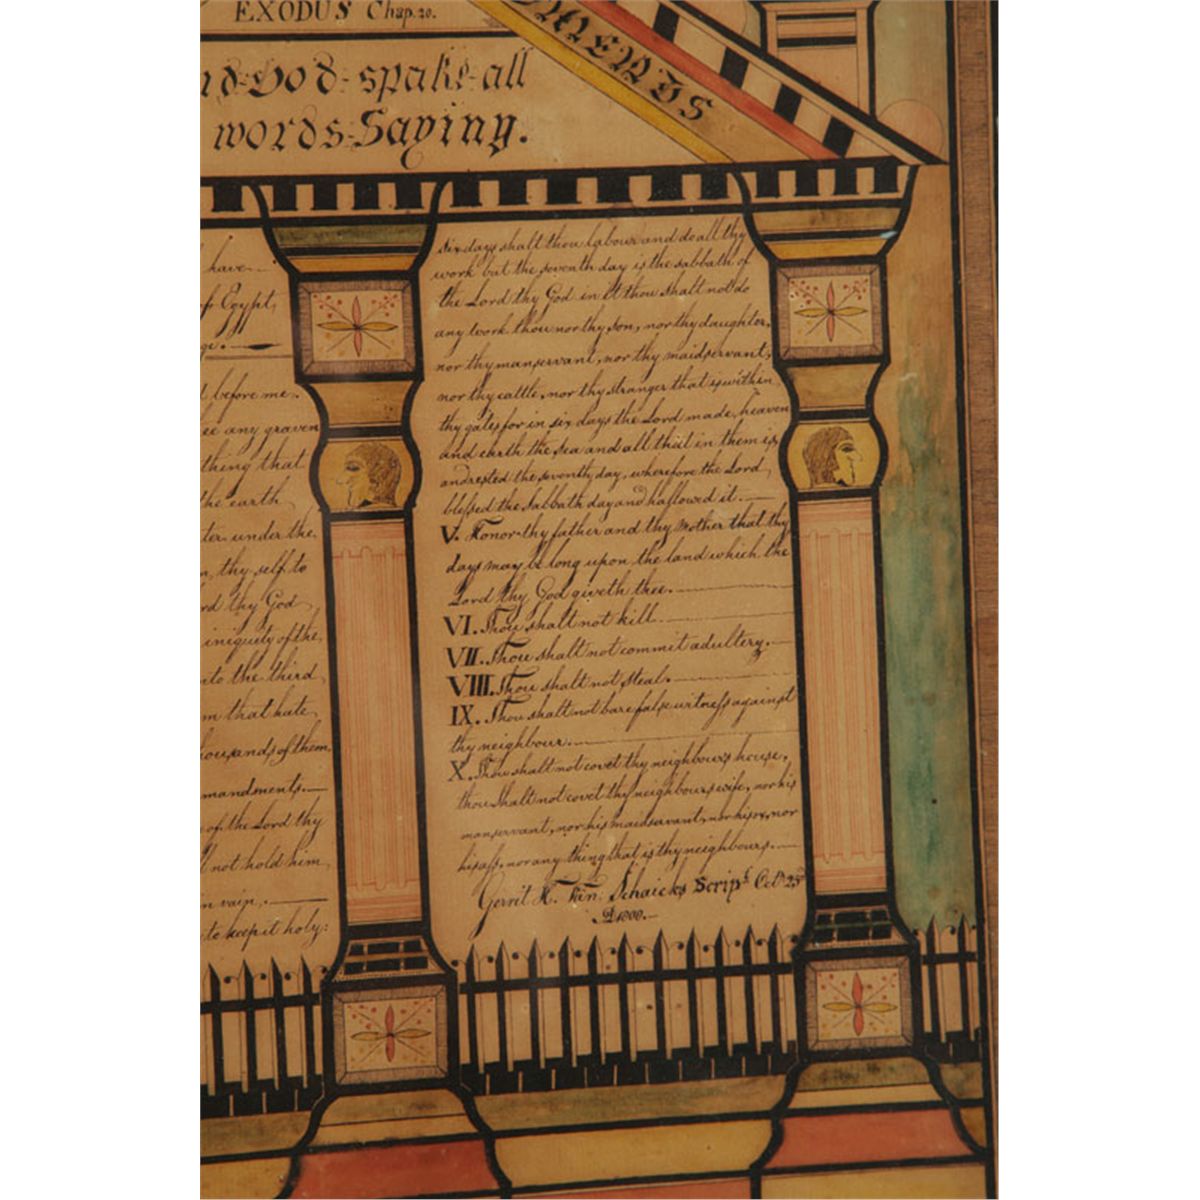 EXODUS Chap. 20.
MENTS
God spake all
words Saying.
have
of Egypt,
before me.
any graven
thing that
the earth
under the
thy self to
thy God
iniquity of the
to the third
that hate
thousands of them
mandments.
of the Lord thy
not hold him
vain.
to keep it holy:
Six days shalt thou labour and do all thy
work but the seventh day is the sabbath of
the Lord thy God in it thou shalt not do
any work thou nor thy son, nor thy daughter,
nor thy manservant, nor thy maidservant,
nor thy cattle, nor thy stranger that is within
thy gates for in six days the Lord made, heaven
and earth the sea and all that in them is,
and rested the seventh day, wherefore the Lord
blessed the Sabbath day and hallowed it.
V. Honor thy father and thy mother that thy
days may be long upon the land which the
Lord thy God giveth thee.
VI. Thou shalt not kill.
VII. Thou shalt not commit adultery.
VIII. Thou shalt not steal.
IX. Thou shalt not bare false witness against
thy neighbour.
X. Thou shalt not covet thy neighbours house,
thou shalt not covet thy neighbours wife, nor his
manservant, nor his maidservant, nor his ox, nor
his ass, nor any thing that is thy neighbours.
Gerrit H. Schaicks Scrips Oct 25